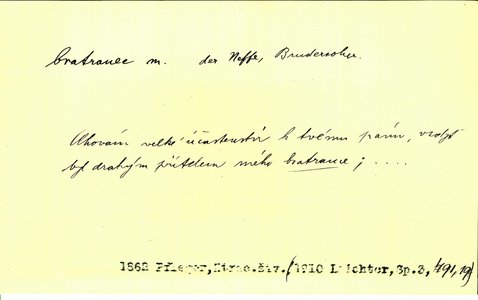 bratranec m. der Neffe, Brudersohn.
Chovám velké účastenství k tvému pánu, vzdyť
byl drahým přítelem mého bratrance; ....
1862 Pfleger, Ztrac.živ. (1910 Leichter, Sp.3, 191,19)